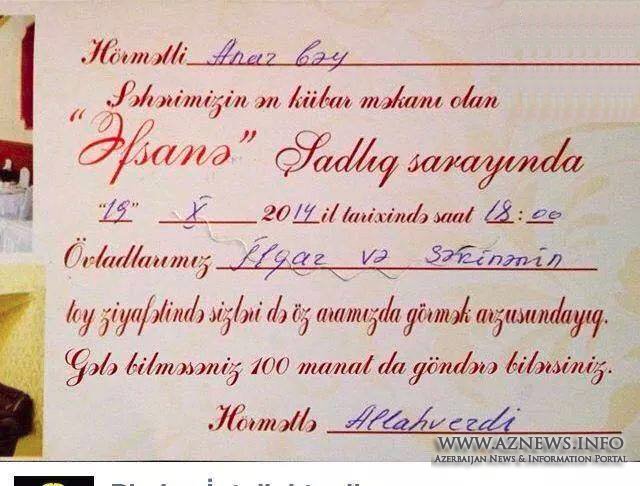 Hörmətli Anar bəy
Şəhərimizin ən kübar məkanı olan
"Əfsanə" Şadlıq sarayında
"19" X 2014 il tarixində saat 18:00
Övladlarımız İlqar və Səkinənin
toy ziyafətində sizləri də öz aramızda görmək arzusundayıq.
Gələ bilməsəniz 100 manat da göndərə bilərsiniz.
Hörmətlə Allahverdi
WWW.AZNEWS.INFO
AZERBAIJAN NEWS & INFORMATION PORTAL